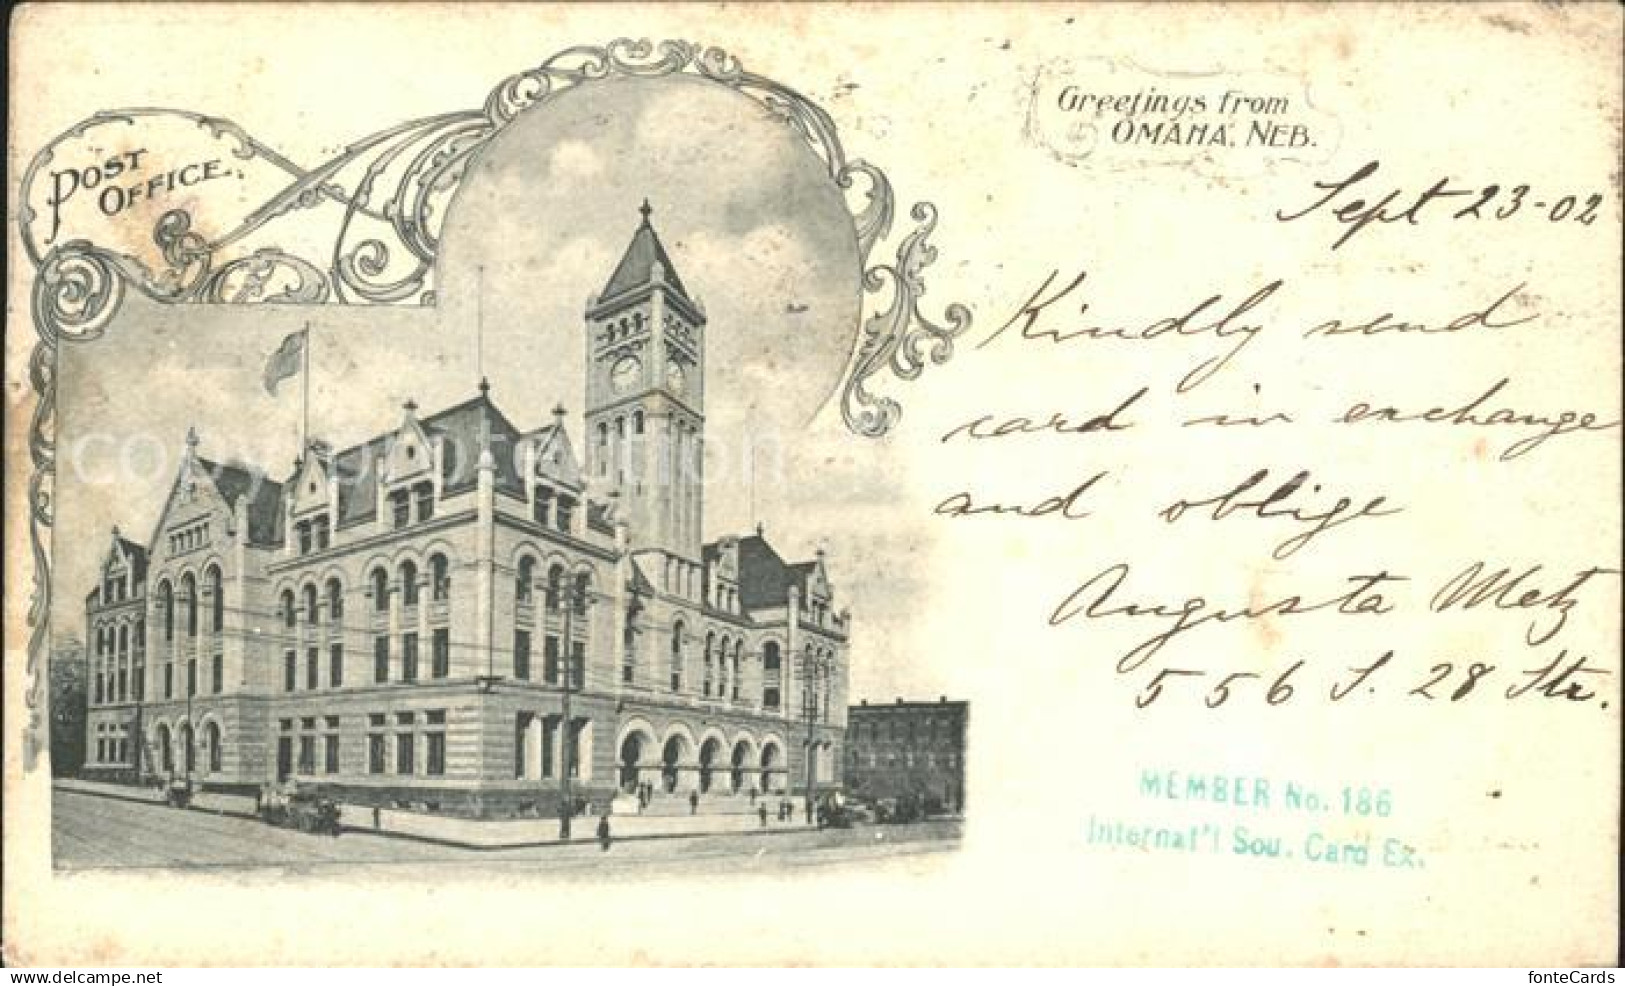 POST
OFFICE.
Greetings from
OMAHA, NEB.
Sept 23-02
Kindly send
card in exchange
and oblige
Augusta Metz
556 S. 28 Str.
MEMBER No. 186
Internat'l Sou. Card Ex.
copyright
www.delcampe.net
fonteCards